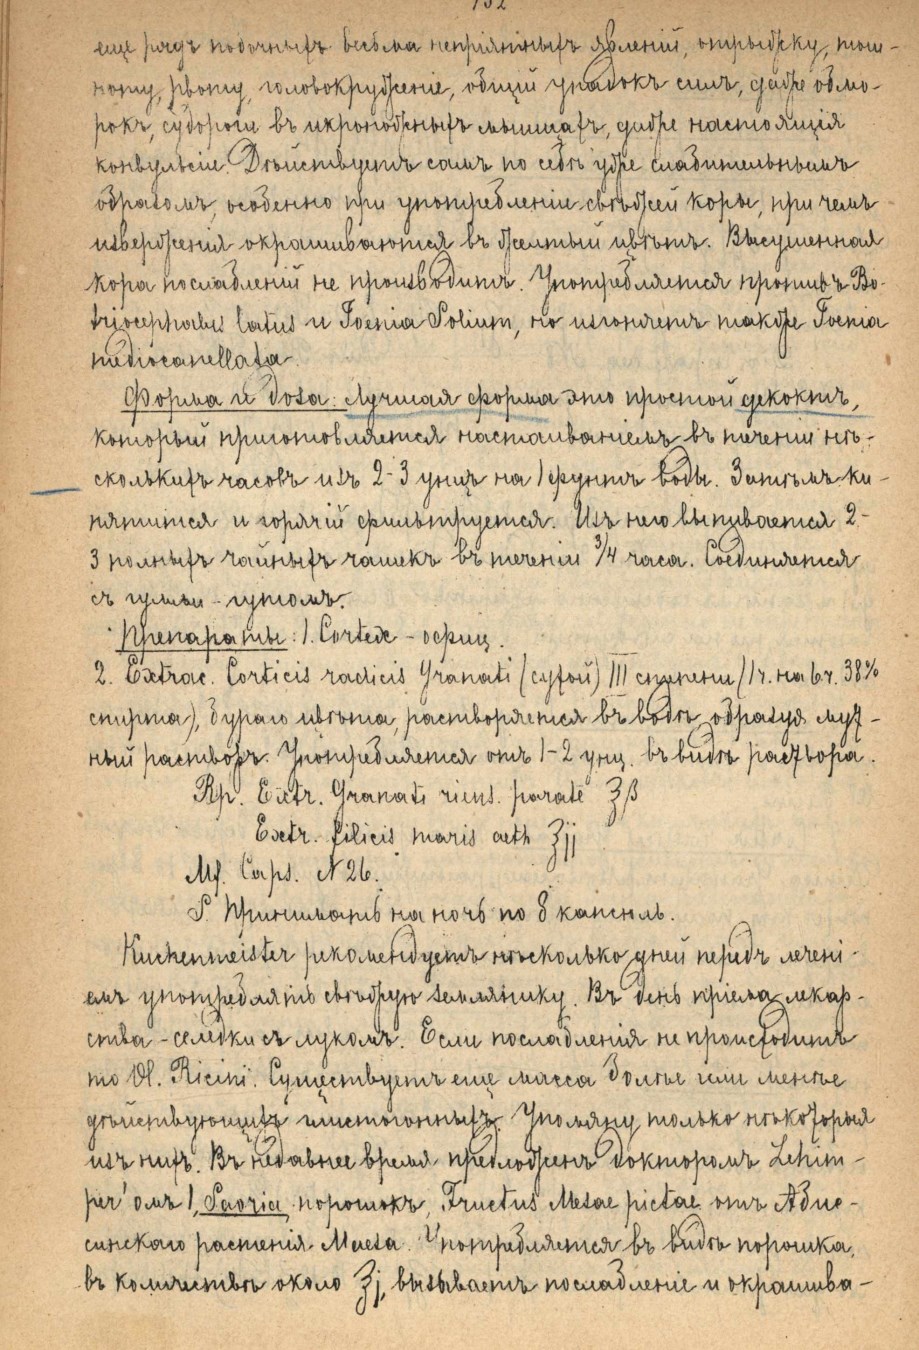 132
еще рядъ побочныхъ весьма непріятныхъ явленій, отрыжку, тош-
ноту, рвоту, головокруженіе, общій упадокъ силъ, даже обмо-
рокъ, судороги въ икроножныхъ мышцахъ, даже настоящія
конвульсіи. Дѣйствуетъ самъ по себѣ уже слабительнымъ
образомъ, особенно при употребленіи свѣжей коры, при чемъ
изверженія окрашиваются въ желтый цвѣтъ. Высушенная
кора послабленій не производитъ. Употребляется противъ Bo-
triocephalus latus и Toenia Solium, но изгоняетъ также Toenia
mediocanellata.
Форма и доза: Лучшая форма это простой декоктъ,
который приготовляется настаиваніемъ въ теченіи нѣ-
сколькихъ часовъ изъ 2-3 унцъ на 1 фунтъ воды. Затѣмъ ки-
пятится и горячій фильтруется. Изъ него выпивается 2-
3 полныхъ чайныхъ чашекъ въ теченіи 3/4 часа. Соединяется
съ гумми-гутомъ.
Препараты: 1. Cortex - офиц.
2. Extrac. Corticis radicis Granati (сухой) III степени (1ч. на 6ч. 38%
спирта), бураго цвѣта, растворяется въ водѣ, образуя мут-
ный растворъ. Употребляется отъ 1-2 унц. въ видѣ раствора.
Rp. Extr. Granati riens. parate ʒβ
Extr. filicis maris aeth ʒjj
Mf. Caps. N 26.
S. Принимать на ночь по 8 капсюль.
Kuchenmeister рекомендуетъ нѣсколько дней передъ лечені-
емъ употреблять свѣжую землянику. Въ день пріема лекар-
ства - селедки съ лукомъ. Если послабленія не происходитъ
то Ol. Ricini. Существуетъ еще масса болѣе или менѣе
дѣйствующихъ глистогонныхъ. Упомяну только нѣкоторыя
изъ нихъ. Въ недавнее время предложенъ докторомъ Lehim-
per'омъ 1, Saoria, порошокъ, Fructus Mesae pictae отъ Абис-
синскаго растенія Maesa. Употребляется въ видѣ порошка,
въ количествѣ около ʒj, вызываетъ послабленіе и окрашива-